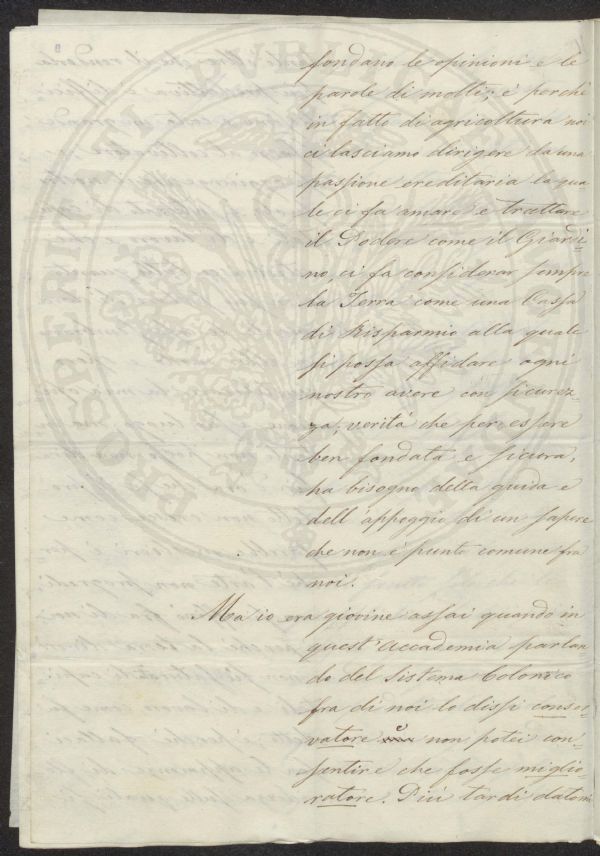 fondano le opinioni e le
parole di molti; e perchè
in fatto di agricoltura noi
ci lasciamo dirigere da una
passione ereditaria la qua
le ci fa amare e trattare
il Podere come il Giardi-
no, ci fa considerar sempre
la Terra come una Cassa
di Risparmio alla quale
si possa affidare ogni
nostro avere con sicurez-
za; verità che per essere
ben fondata e sicura,
ha bisogno della guida e
dell'appoggio di un sapere
che non è punto comune fra
noi.
Ma io era giovine assai quando in
quest'Accademia parlan
do del Sistema Colonico
fra di noi lo dissi conser
vatore e non potei con-
sentire che fosse miglio-
ratore. Più tardi datomi
PROSPERITATI PUBLICAE